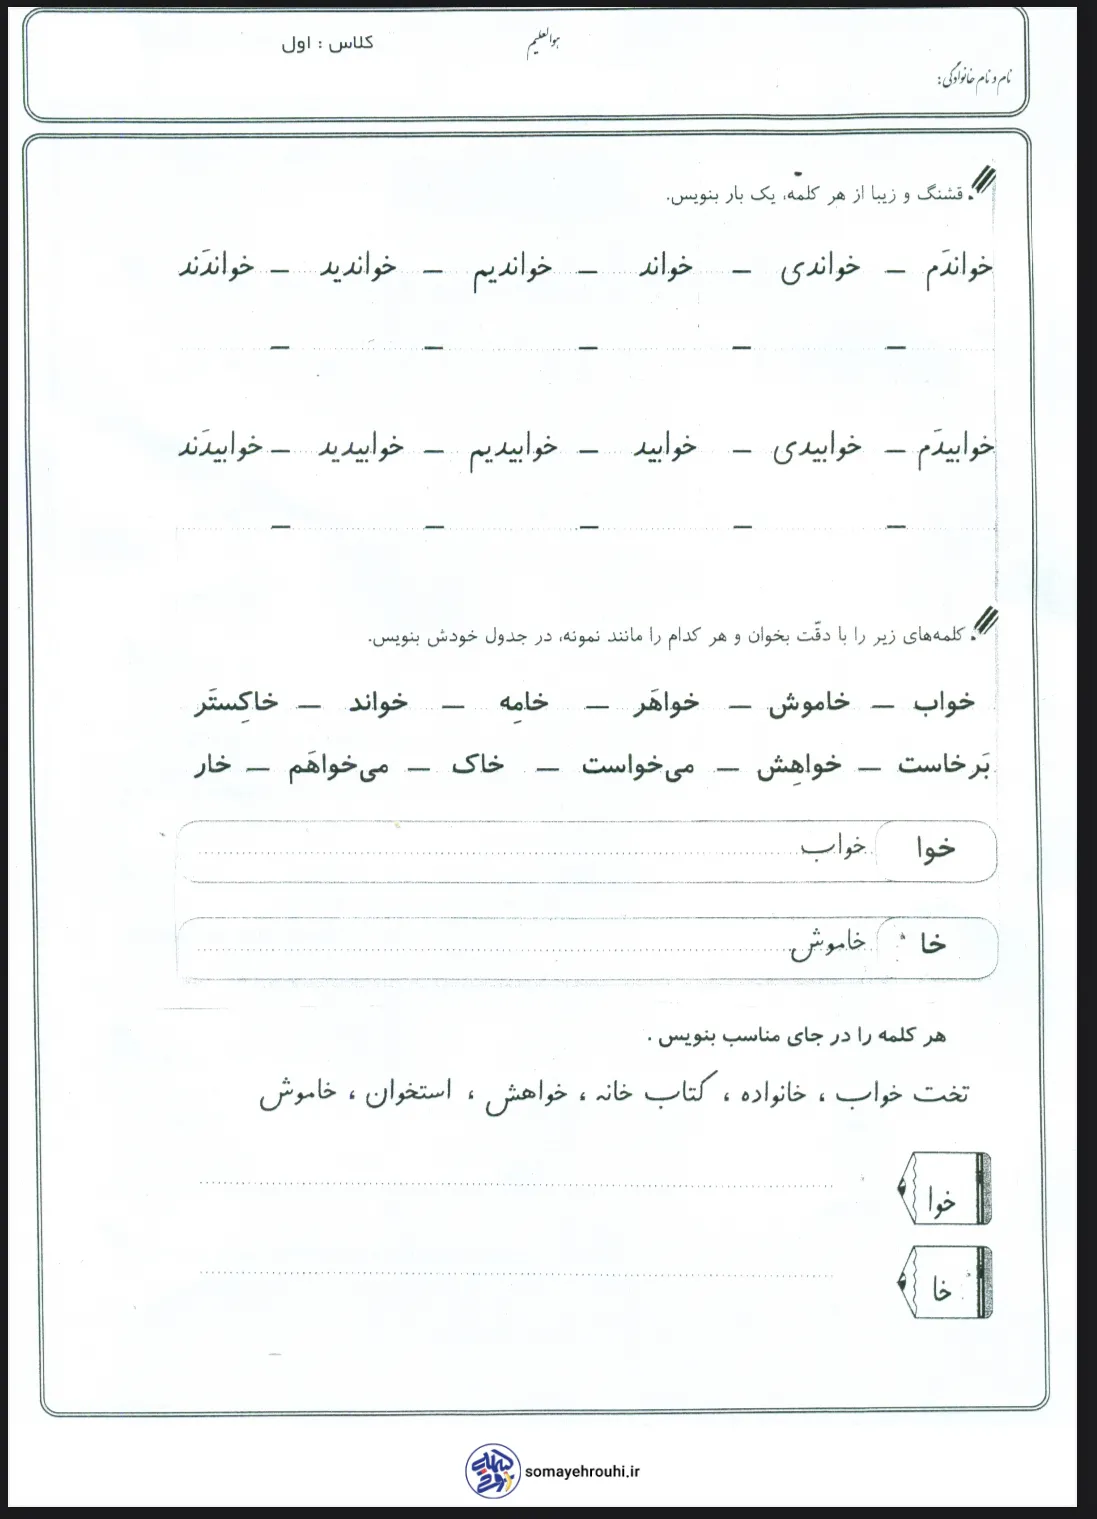 هوالعلیم
کلاس : اول
نام و نام خانوادگی:
قشنگ و زیبا از هر کلمه، یک بار بنویس.
خواندَم – خواندی – خواند – خواندیم – خواندید – خواندَند
– – – – –
خوابیدَم – خوابیدی – خوابید – خوابیدیم – خوابیدید – خوابیدَند
– – – – –
کلمه‌های زیر را با دقّت بخوان و هر کدام را مانند نمونه، در جدول خودش بنویس.
خواب – خاموش – خواهَر – خامِه – خواند – خاکِستَر
بَرخاست – خواهِش – می‌خواست – خاک – می‌خواهَم – خار
خوا خواب
خا خاموش
هر کلمه را در جای مناسب بنویس .
تخت خواب ، خانواده ، کتاب خانه ، خواهش ، استخوان ، خاموش
خوا
خا
somayehrouhi.ir